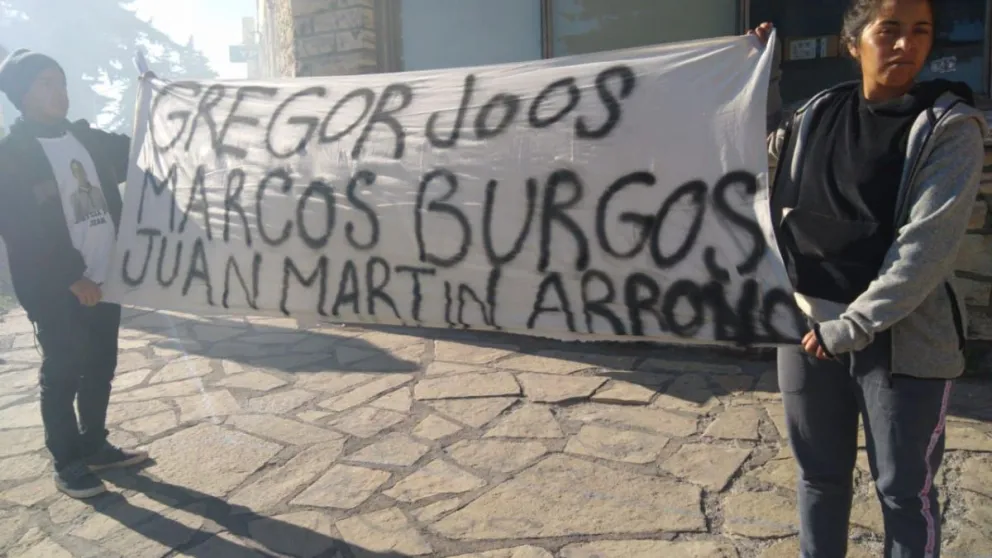 GREGOR JOOS
MARCOS BURGOS
JUAN MARTIN ARROYO